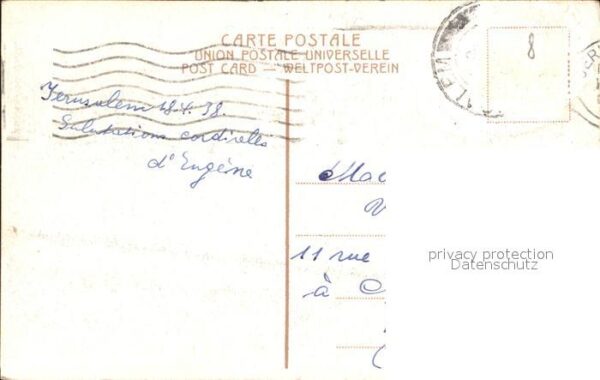 CARTE POSTALE
UNION POSTALE UNIVERSELLE
POST CARD — WELTPOST-VEREIN
8
Jerusalem 18.4.38.
Salutations cordiells
d'Eugène
11 rue
à
privacy protection
Datenschutz